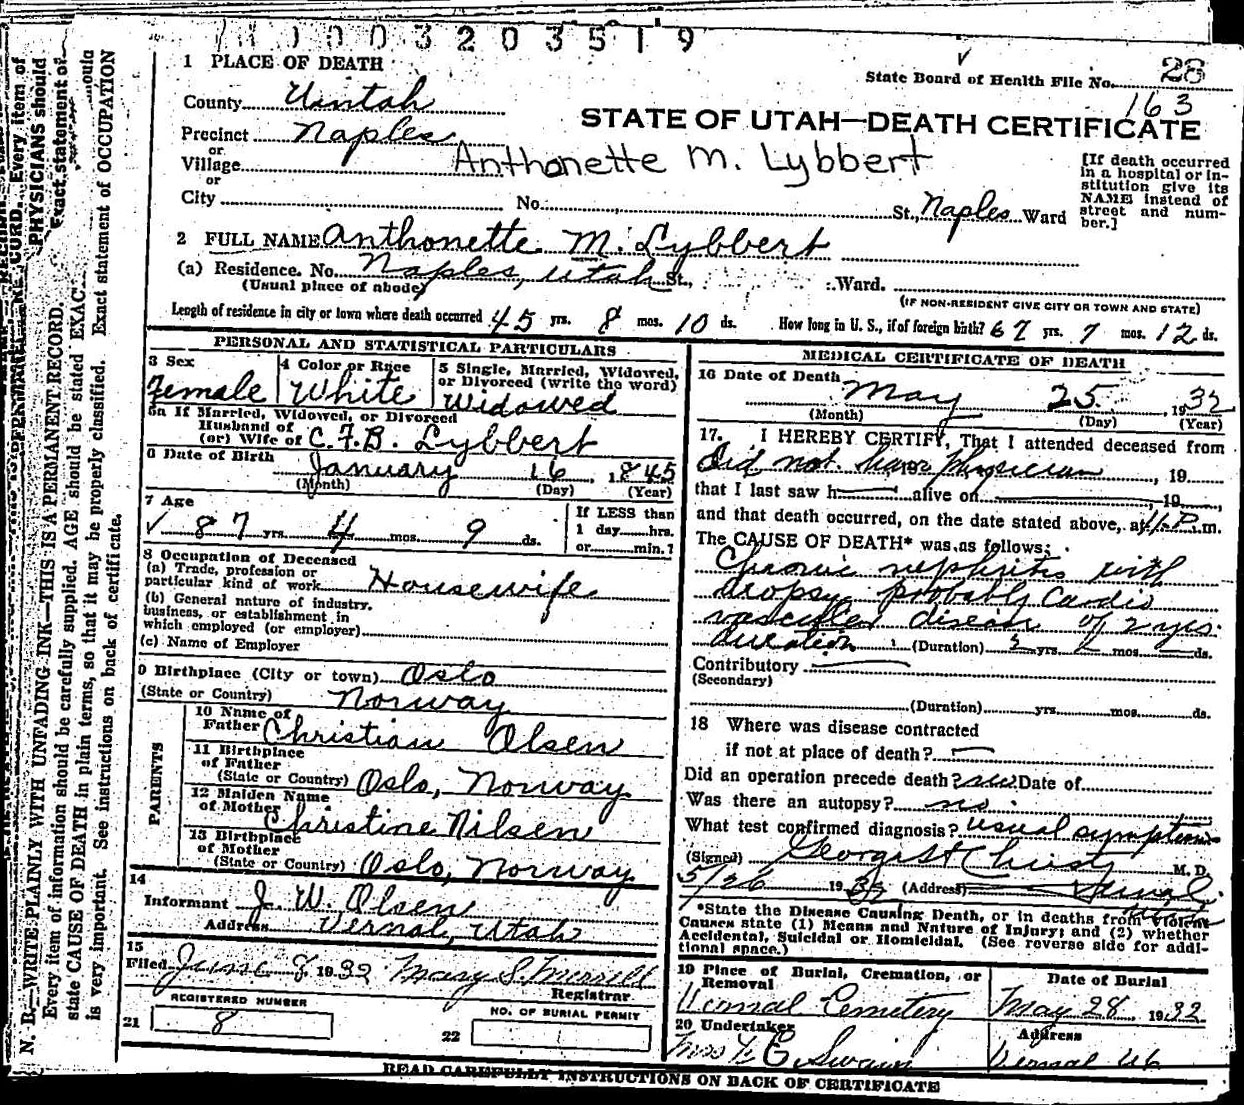 1 0 0 0 3 2 0 3 5 1 9
1 PLACE OF DEATH
State Board of Health File No. 28
163
County Uintah
STATE OF UTAH—DEATH CERTIFICATE
Precinct Naples
or
Village
Anthonette M. Lybbert
or
City No. St., Naples Ward
[If death occurred
in a hospital or in-
stitution give its
NAME instead of
street and num-
ber.]
2 FULL NAME Anthonette M. Lybbert
(a) Residence. No. Naples, Utah St., Ward.
(Usual place of abode)
(IF NON-RESIDENT GIVE CITY OR TOWN AND STATE)
Length of residence in city or town where death occurred 45 yrs. 8 mos. 10 ds. How long in U. S., if of foreign birth? 67 yrs. 7 mos. 12 ds.
PERSONAL AND STATISTICAL PARTICULARS
3 Sex
Female
4 Color or Race
White
5 Single, Married, Widowed,
or Divorced (write the word)
Widowed
5a If Married, Widowed, or Divorced
Husband of
(or) Wife of C. F. B. Lybbert
6 Date of Birth January 16, 1845
(Month) (Day) (Year)
7 Age
87 yrs. 4 mos. 9 ds.
If LESS than
1 day hrs.
or min.?
8 Occupation of Deceased
(a) Trade, profession or
particular kind of work Housewife
(b) General nature of industry,
business, or establishment in
which employed (or employer)
(c) Name of Employer
9 Birthplace (City or town) Oslo
(State or Country) Norway
PARENTS
10 Name of
Father Christian Olsen
11 Birthplace
of Father
(State or Country) Oslo, Norway
12 Maiden Name
of Mother Christine Nilsen
13 Birthplace
of Mother
(State or Country) Oslo, Norway
14
Informant J. W. Olsen
Address Vernal, Utah
15
Filed June 8 1932 Mary S. Merrell
Registrar
REGISTERED NUMBER
21 8
NO. OF BURIAL PERMIT
22
MEDICAL CERTIFICATE OF DEATH
16 Date of Death
May 25, 1932
(Month) (Day) (Year)
17. I HEREBY CERTIFY, That I attended deceased from
Did not have Physician, 19
that I last saw h alive on, 19
and that death occurred, on the date stated above, at 11 P. m.
The CAUSE OF DEATH* was as follows:
Chronic nephritis with
dropsy probably Cardio
vascular disease of 2 yrs.
duration (Duration) 2 yrs. mos. ds.
Contributory
(Secondary)
(Duration) yrs. mos. ds.
18 Where was disease contracted
if not at place of death?
Did an operation precede death? no Date of
Was there an autopsy? no.
What test confirmed diagnosis? usual symptoms
(Signed) M. D.
5/26 1932 (Address) Vernal, Utah
*State the Disease Causing Death, or in deaths from Violent
Causes state (1) Means and Nature of Injury; and (2) whether
Accidental, Suicidal or Homicidal. (See reverse side for addi-
tional space.)
19 Place of Burial, Cremation, or
Removal
Vernal Cemetery
Date of Burial
May 28 1932
20 Undertaker
Mrs. E. Swain
Address
Vernal Ut
READ CAREFULLY INSTRUCTIONS ON BACK OF CERTIFICATE
N. B.—WRITE PLAINLY WITH UNFADING INK—THIS IS A PERMANENT RECORD.
Every item of information should be carefully supplied. AGE should be stated EXAC
state CAUSE OF DEATH in plain terms, so that it may be properly classified. Exact statement of OCCUPATION
is very important. See instructions on back of certificate.
PHYSICIANS should
Exact statement of